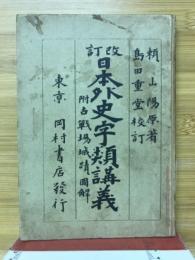 頼山陽原著
島田重堂校訂
改訂
日本外史字類講義
附古戰場城蹟圖解
東京 岡村書店發行